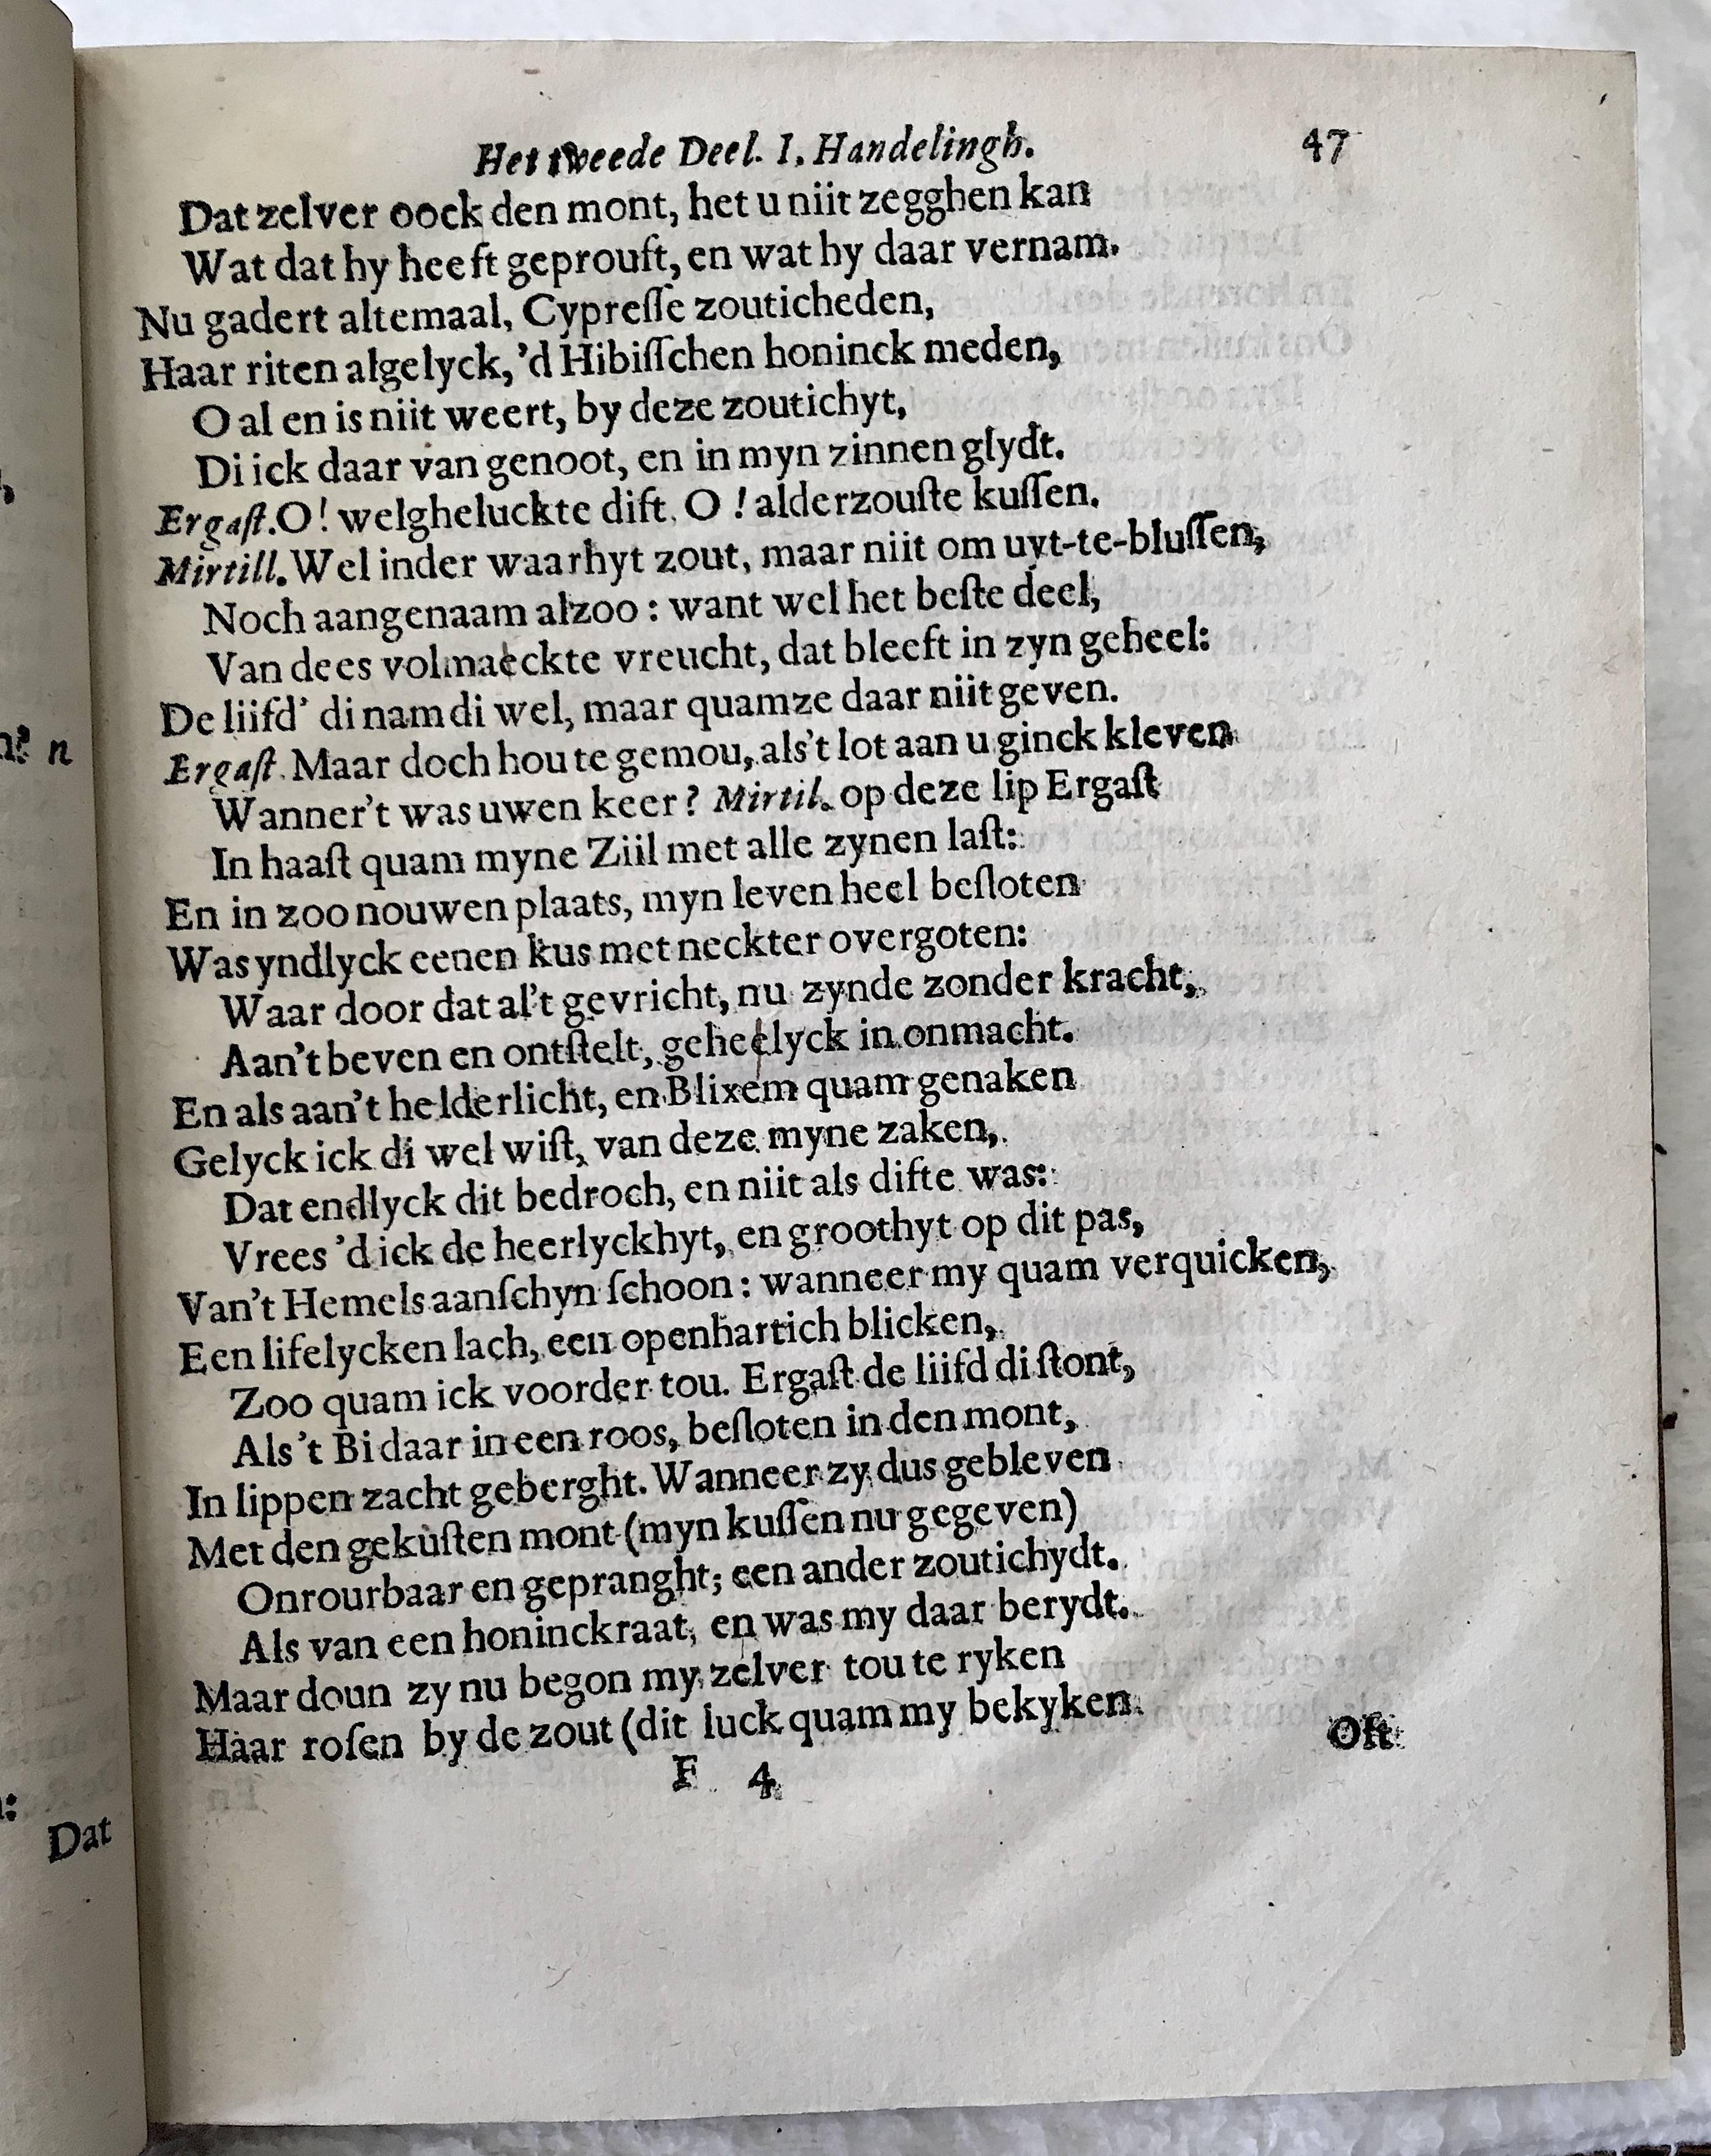 Het tweede Deel. I. Handelingh. 47
Dat zelver oock den mont, het u niit zegghen kan
Wat dat hy heeft geprouft, en wat hy daar vernam.
Nu gadert altemaal, Cypreſſe zouticheden,
Haar riten algelyck, 'd Hibiſſchen honinck meden,
O al en is niit weert, by deze zoutichyt,
Di ick daar van genoot, en in myn zinnen glydt.
Ergaſt. O! welgheluckte dift. O! alderzouſte kuſſen.
Mirtill. Wel inder waarhyt zout, maar niit om uyt-te-bluſſen,
Noch aangenaam alzoo: want wel het beſte deel,
Van dees volmaeckte vreucht, dat bleeft in zyn geheel:
De liifd' di nam di wel, maar quamze daar niit geven.
Ergaſt. Maar doch hou te gemou, als't lot aan u ginck kleven
Wanner't was uwen keer? Mirtil. op deze lip Ergaſt
In haaſt quam myne Ziil met alle zynen laſt:
En in zoo nouwen plaats, myn leven heel beſloten
Was yndlyck eenen kus met neckter overgoten:
Waar door dat al't gevricht, nu zynde zonder kracht,
Aan't beven en ontſtelt, geheelyck in onmacht.
En als aan't helderlicht, en Blixem quam genaken
Gelyck ick di wel wiſt, van deze myne zaken,
Dat endlyck dit bedroch, en niit als difte was:
Vrees 'd ick de heerlyckhyt, en groothyt op dit pas,
Van't Hemels aanſchyn ſchoon: wanneer my quam verquicken,
Een lifelycken lach, een openhartich blicken,
Zoo quam ick voorder tou. Ergaſt de liifd di ſtont,
Als 't Bi daar in een roos, beſloten in den mont,
In lippen zacht geberght. Wanneer zy dus gebleven
Met den gekuſten mont (myn kuſſen nu gegeven)
Onrourbaar en gepranght; een ander zoutichydt.
Als van een honinckraat, en was my daar berydt.
Maar doun zy nu begon my zelver tou te ryken
Haar roſen by de zout (dit luck quam my bekyken
Oft
F 4
n
Dat